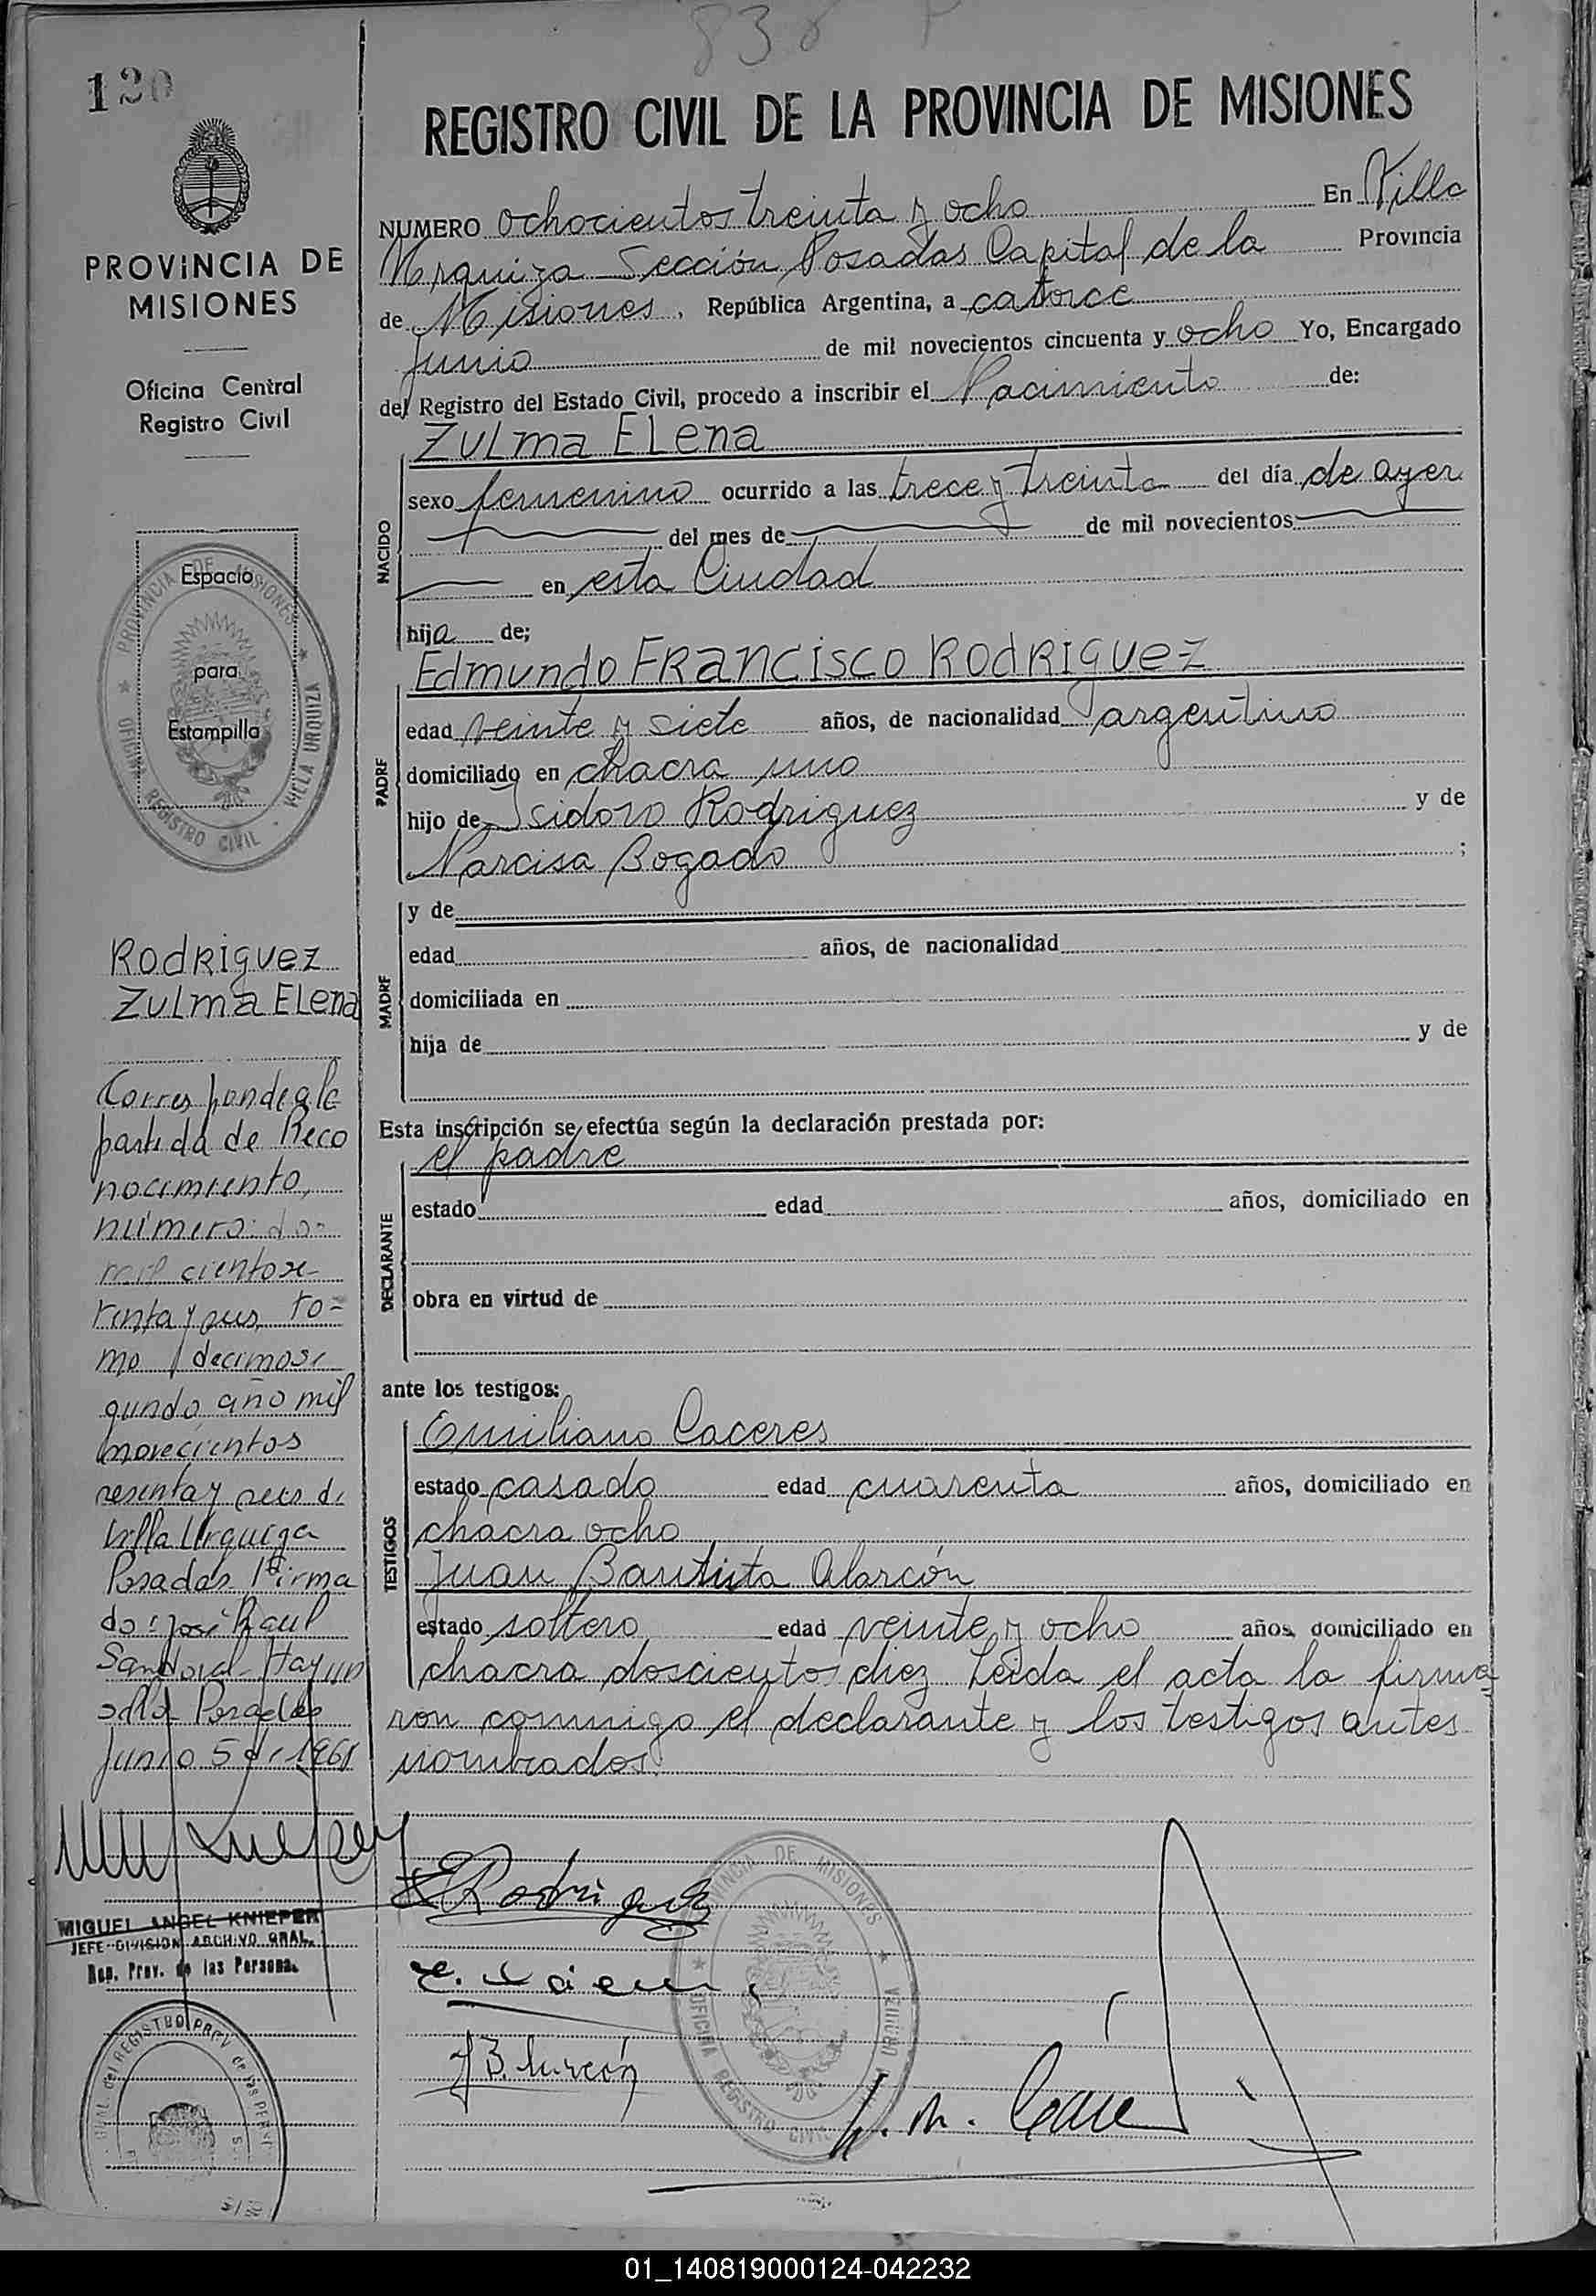 838
120
REGISTRO CIVIL DE LA PROVINCIA DE MISIONES
PROVINCIA DE
MISIONES
Oficina Central
Registro Civil
NUMERO ochocientos treinta y ocho En Villa
Urquiza Sección Posadas Capital de la Provincia
de Misiones, República Argentina, a catorce
Junio de mil novecientos cincuenta y ocho Yo, Encargado
del Registro del Estado Civil, procedo a inscribir el Nacimiento de:
Zulma Elena
NACIDO
sexo femenino ocurrido a las trece y treinta del día de ayer
del mes de de mil novecientos
en esta Ciudad
hija de;
Edmundo Francisco Rodriguez
PADRE
edad veinte y siete años, de nacionalidad argentino
domiciliado en chacra uno
hijo de Isidoro Rodriguez y de
Narcisa Bogado ;
MADRE
y de
edad años, de nacionalidad
domiciliada en
hija de y de
Esta inscripción se efectúa según la declaración prestada por:
el padre
DECLARANTE
estado edad años, domiciliado en
obra en virtud de
ante los testigos:
TESTIGOS
Emiliano Caceres
estado casado edad cuarenta años, domiciliado en
chacra ocho
Juan Bautista Alarcón
estado soltero edad veinte y ocho años domiciliado en
chacra doscientos diez Leida el acta la firma
ron conmigo el declarante y los testigos antes
nombrados.
Espacio
para
Estampilla
PROVINCIA DE MISIONES
OFICINA REGISTRO CIVIL - VILLA URQUIZA
Rodriguez
Zulma Elena
Corresponde a la
partida de Reco
nocimiento,
número dos
mil ciento se
tenta y seis, to=
mo decimose
gundo, año mil
novecientos
sesenta y seis de
Villa Urquiza
Posadas Firma
do: José Raul
Sandoval-Hay un
sello Posadas
Junio 5 de 1968
MIGUEL ANGEL KNIEPER
JEFE DIVISION ARCHIVO GRAL.
Reg. Prov. de las Personas
E Rodriguez
PROVINCIA DE MISIONES
OFICINA REGISTRO CIVIL
REGISTRO PROV de las PERS
01_140819000124-042232